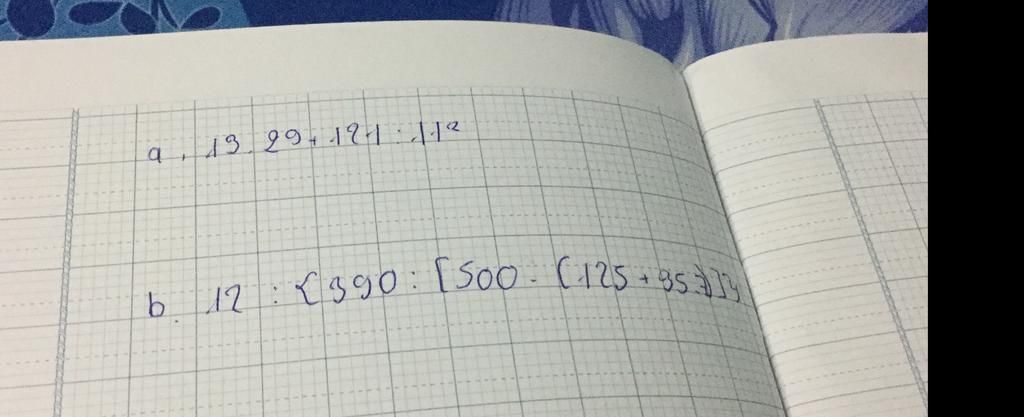 a. 19.29+121:11²
b. 12:{390:[500-(125+35.7)]}